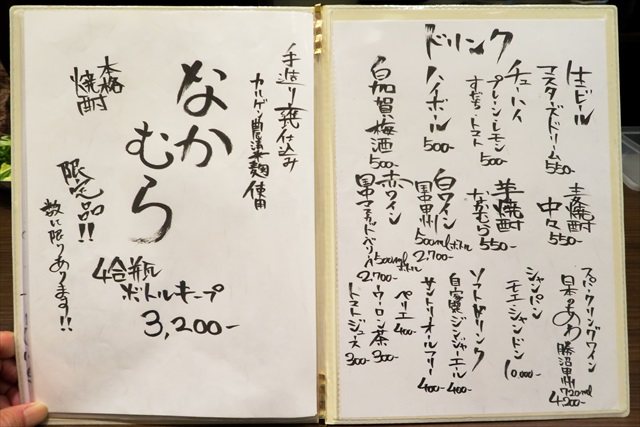 手造り甕仕込み
カルゲン農法米麹使用
なかむら
本格
焼酎
限定品!!
数に限りあります!!
4合瓶
ボトルキープ
3,200-
ドリンク
生ビール
マスターズドリーム 550-
チューハイ
プレーン・レモン
すだち・トマト 500-
ハイボール 500-
白加賀・梅酒 500-
麦焼酎
中々 550-
芋焼酎
なかむら 550-
白ワイン
国中甲州 500mlボトル 2,700-
赤ワイン
国中マスカットベリーA 500mlボトル 2,700-
スパークリングワイン
日本のあわ 勝沼甲州 720ml 4,200-
シャンパン
モエ・シャンドン 10,000-
ソフトドリンク
自家製ジンジャーエール 400-
サントリオールフリー 400-
ペリエ 400-
ウーロン茶 300-
トマトジュース 300-